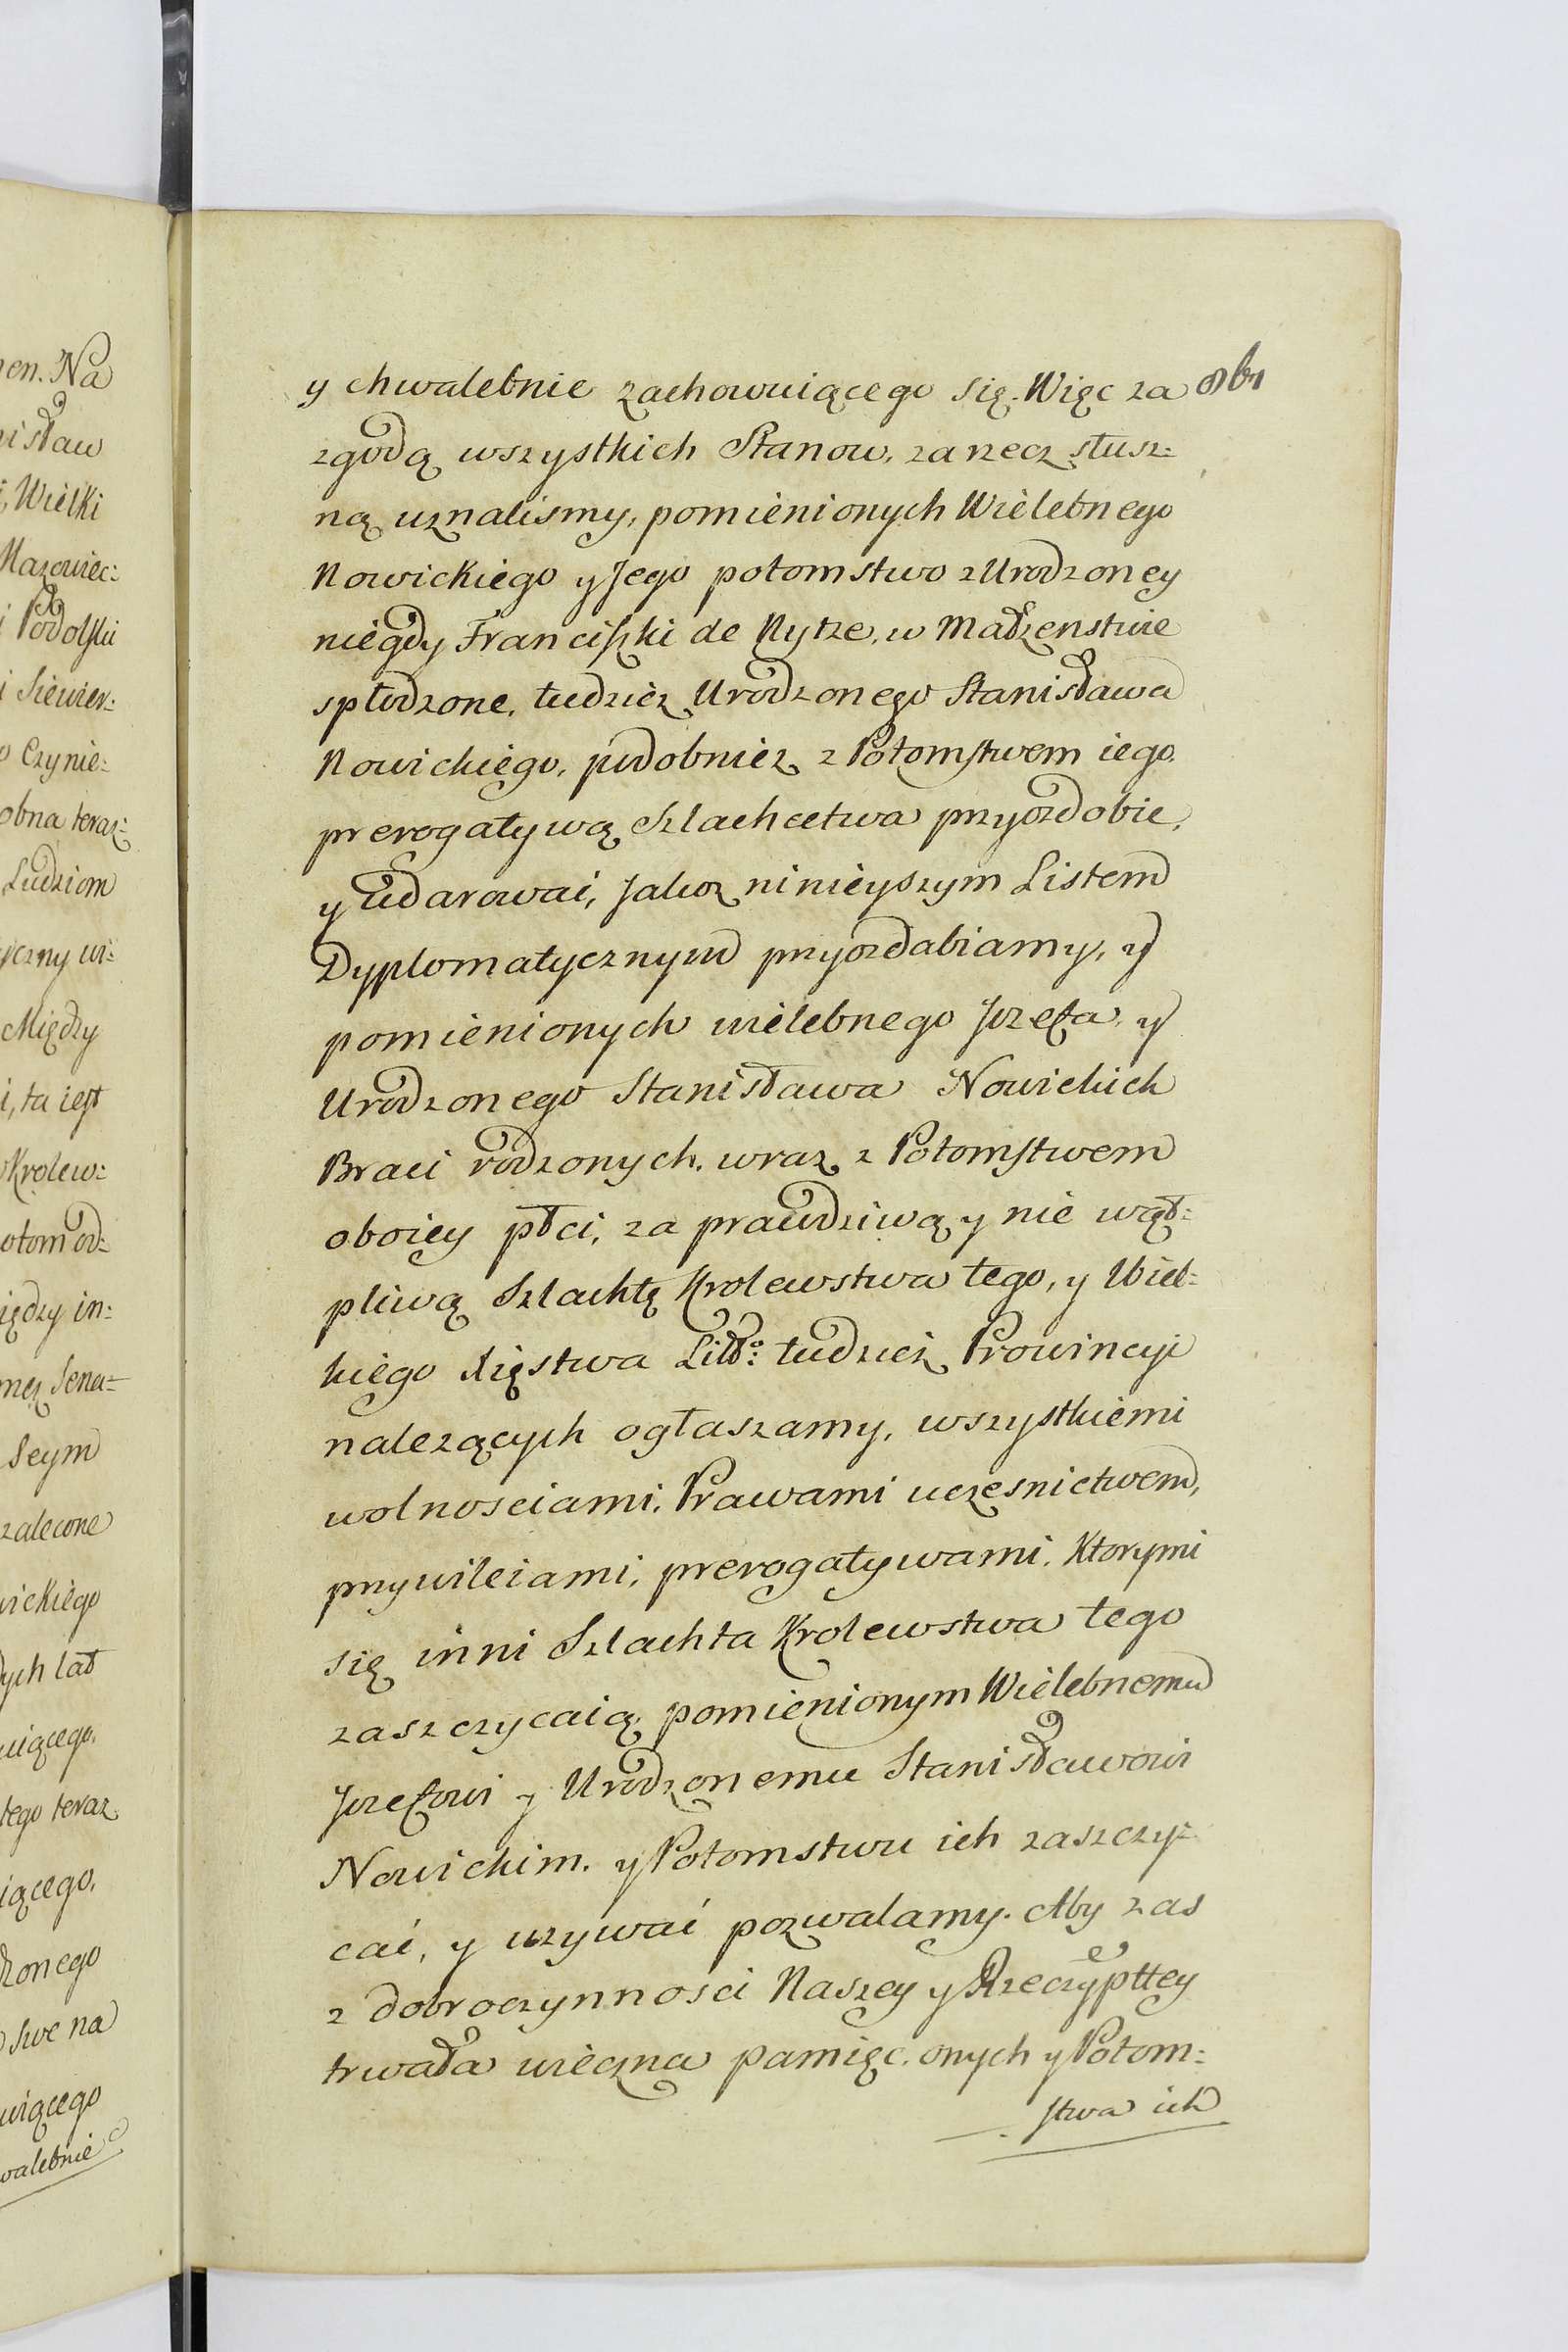 y chwalebnie zachowuiącego się. Więc za
zgodą wszystkich Stanow, za rzecz słusz:
ną uznalismy, pomienionych Wielebnego
Nowickiego y Jego potomstwo z Urodzoney
niegdy Franciszki de Nytze, w Małzenstwie
spłodzone, tudziez Urodzonego Stanisława
Nowickiego, podobniez z Potomstwem iego.
prerogatywą Szlachectwa przyozdobić,
y udarować, Jakoz ninieyszym Listem
Dyplomatycznym przyozdabiamy, y
pomienionych wielebnego Jozefa, y
Urodzonego Stanisława Nowickich
Braci rodzonych, wraz z Potomstwem
oboiey płci, za prawdziwą y nie wąt:
pliwą Szlachtę Krolewstwa tego, y Wiel:
kiego Xięstwa Litto: tudzież Prowincyi
nalezących ogłaszamy, wszystkiemi
wolnosciami, Prawami uczesnictwem,
przywileiami, prerogatywami, Ktorymi
się inni Szlachta Krolewstwa tego
zaszczycaią, pomienionym Wielebnemu
Jozefowi y Urodzonemu Stanisławowi
Nowickim, y Potomstwu ich zaszczy:
cać, y uzywać pozwalamy. Aby zas
z dobroczynności Naszey y Rzeczypttey
trwała wieczna pamięć, onych y Potom:
stwa ich
en. Na
isław
i, Wielki
Mazowiec:
i Podolski
i Siewier:
o Czynie:
obna teraz:
Ludziom
yczny wi:
Między
i, ta iest
Krolew:
otom od:
iędzy in:
męz Sena=
Seym
zalecone
wickiego
ych lat
uiącego,
tego teraz
iącego,
dzonego
swe na
wiącego
walebnie